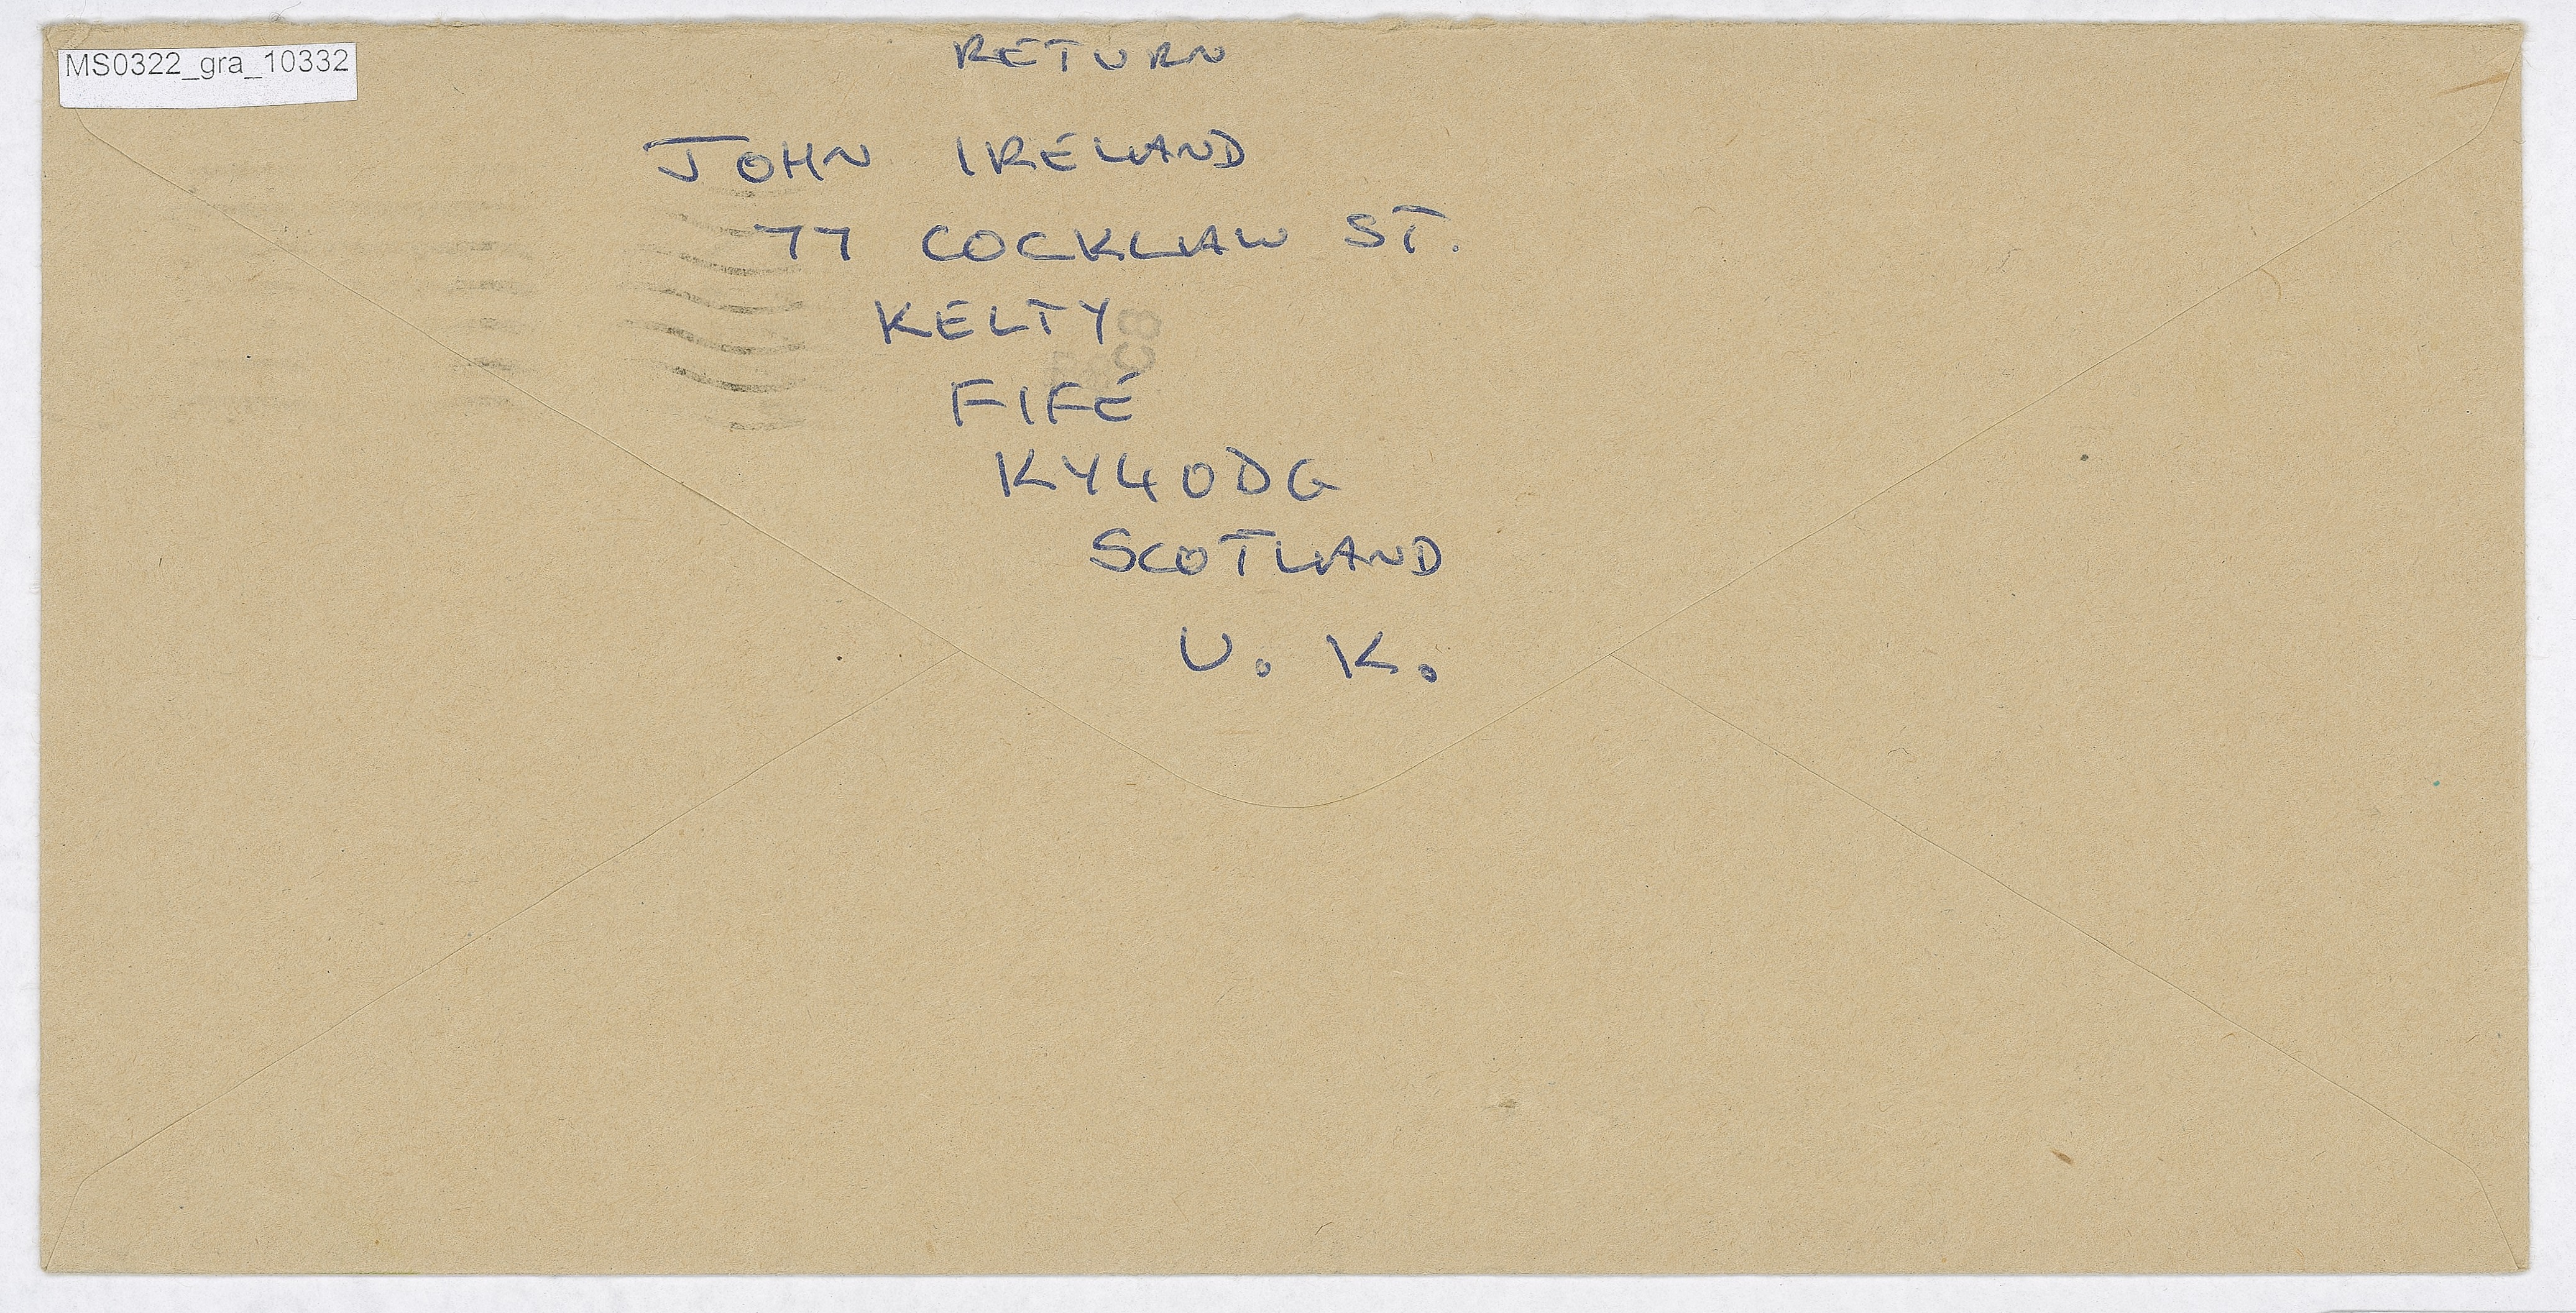 MS0322_gra_10332
RETURN
JOHN IRELAND
77 COCKLAW ST.
KELTY
FIFE
KY4 0DG
SCOTLAND
U. K.